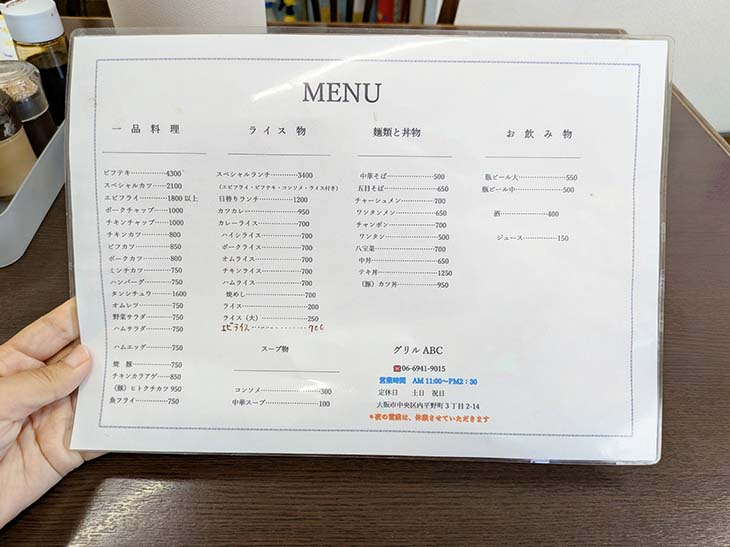 MENU
一品料理
ビフテキ············4300
スペシャルカツ······2100
エビフライ··········1800以上
ポークチャップ······1000
チキンチャップ······1000
チキンカツ··········800
ビフカツ············850
ポークカツ··········800
ミンチカツ··········750
ハンバーグ··········750
タンシチュウ········1600
オムレツ············750
野菜サラダ··········750
ハムサラダ··········750
ハムエッグ··········750
焼豚················750
チキンカラアゲ······850
(豚)ヒトクチカツ 950
魚フライ············750
ライス物
スペシャルランチ············3400
(エビフライ・ビフテキ・コンソメ・ライス付き)
日替りランチ············1200
カツカレー············950
カレーライス············700
ハイシライス············700
ポークライス············700
オムライス············700
チキンライス············700
ハムライス············700
焼めし············700
ライス············200
ライス(大)············250
エビライス············700
スープ物
コンソメ············300
中華スープ············100
麺類と丼物
中華そば············500
五目そば············650
チャーシューメン············700
ワンタンメン············650
チャンポン············700
ワンタン············500
八宝菜············700
中丼············650
テキ丼············1250
(豚)カツ丼············950
お飲み物
瓶ビール大············550
瓶ビール中············500
酒············400
ジュース············150
グリルABC
☎06-6941-9015
営業時間 AM 11:00~PM2:30
定休日 土日 祝日
大阪市中央区内平野町3丁目2-14
*夜の営業は、休業させていただきます